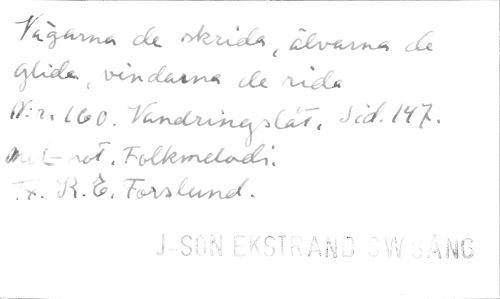 Vågarna de skrida, älvarna de
glida, vindarna de rida
N:r. 160. Vandringslåt. Sid. 147.
not. Folkmelodi.
Tx. K. E. Forslund.
J-SON EKSTRAND SW SÅNG